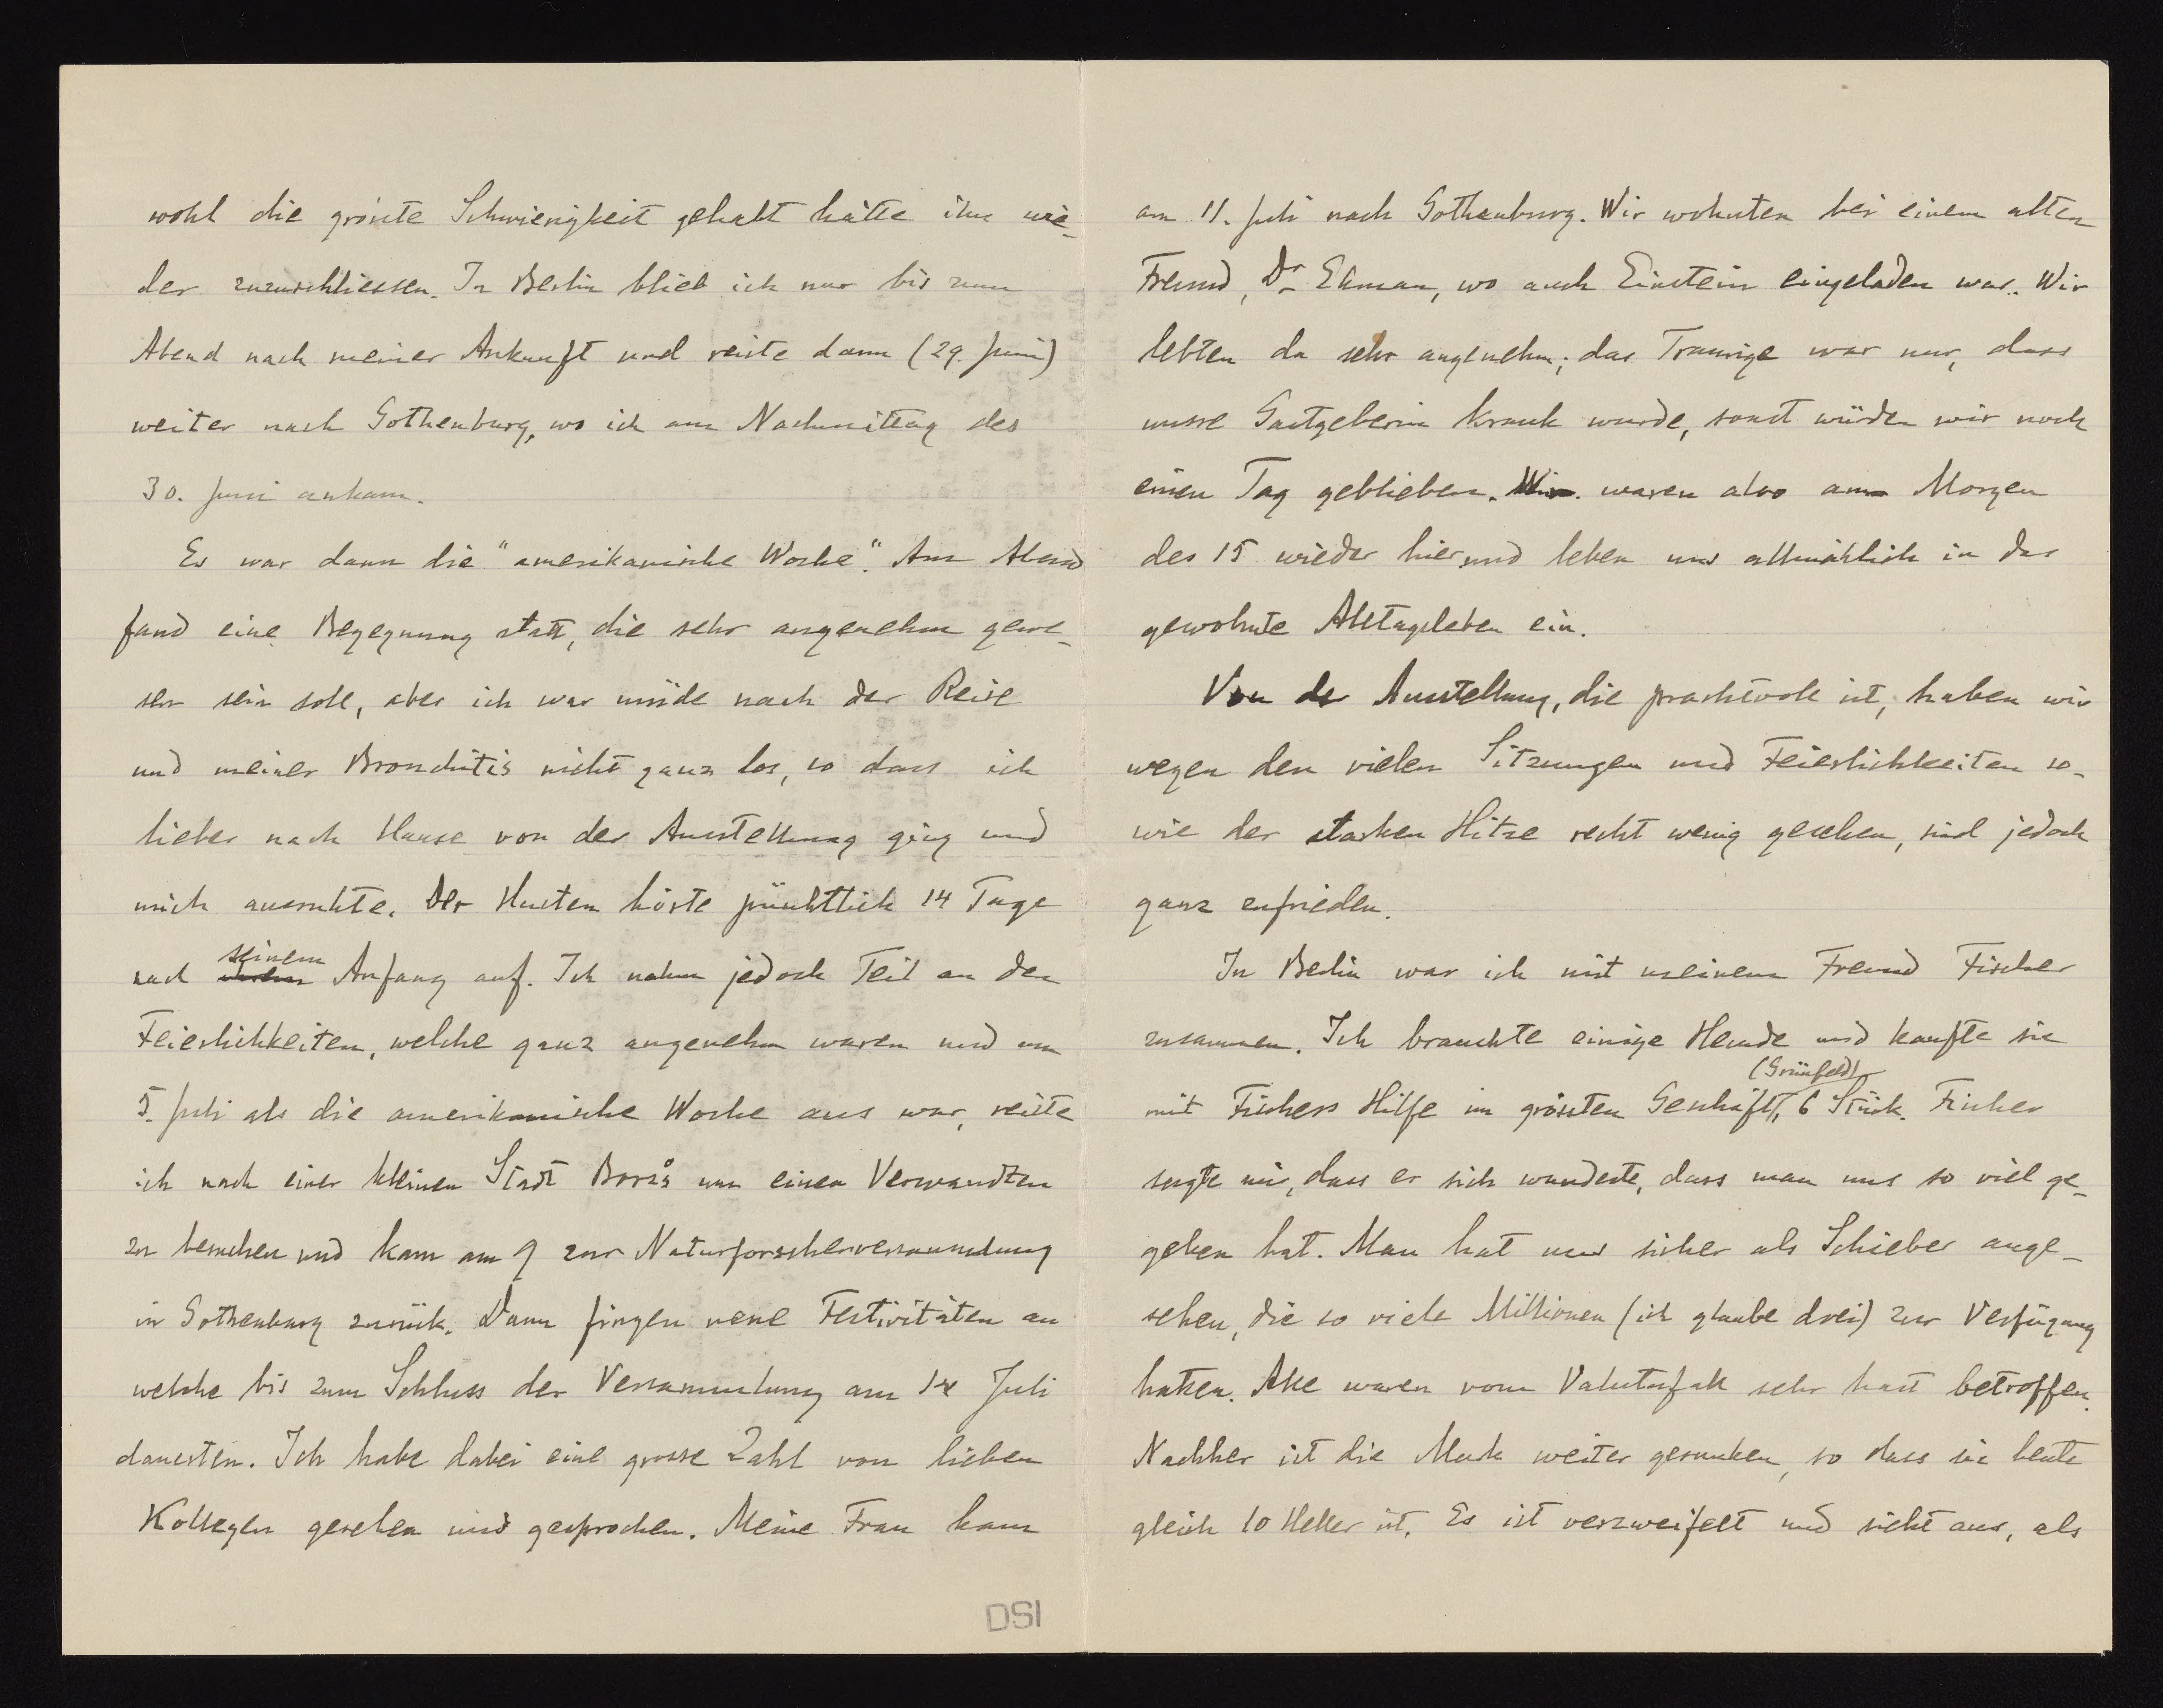 wohl die grösste Schwierigkeit gehabt hätte ihn wie-
der zuzuschliessen. In Berlin blieb ich nur bis zum
Abend nach meiner Ankunft und reiste dann (29. Juni)
weiter nach Gothenburg, wo ich am Nachmittag des
30. Juni ankam.
Es war dann die "amerikanische Woche". Am Abend
fand eine Begegnung statt, die sehr angenehm gewe-
sen sein soll, aber ich war müde nach der Reise
und meiner Bronchitis nicht ganz los, so dass ich
lieber nach Hause von der Ausstellung ging und
mich ausruhte. Der Husten hörte pünktlich 14 Tage
nach seinem Anfang auf. Ich nahm jedoch Teil an den
Feierlichkeiten, welche ganz angenehm waren und am
5. Juli als die amerikanische Woche aus war, reiste
ich nach einer kleinen Stadt Borås um einen Verwandten
zu besuchen und kam am 9 zur Naturforscherversammlung
in Gothenburg zurück. Dann fingen neue Festivitäten an
welche bis zum Schluss der Versammlung am 14 Juli
dauerten. Ich habe dabei eine grosse Zahl von lieben
Kollegen gesehen und gesprochen. Meine Frau kam
DSI
am 11. Juli nach Gothenburg. Wir wohnten bei einem alten
Freund, Dr Ekman, wo auch Einstein eingeladen war. Wir
lebten da sehr angenehm; das Traurige war nur, dass
unsre Gastgeberin krank wurde, sonst würden wir noch
einen Tag geblieben. Wir waren also am Morgen
des 15 wieder hier und leben uns allmählich in das
gewohnte Alltagsleben ein.
Von der Ausstellung, die prachtvoll ist, haben wir
wegen den vielen Sitzungen und Feierlichkeiten so-
wie der starken Hitze recht wenig gesehen, sind jedoch
ganz zufrieden.
In Berlin war ich mit meinem Freund Fischer
zusammen. Ich brauchte einige Hemde und kaufte sie
mit Fischers Hilfe im grössten Geschäft (Grünfeld), 6 Stück. Fischer
sagte mir, dass er sich wunderte, dass man uns so viel ge-
geben hat. Man hat uns sicher als Schieber ange-
sehen, die so viele Millionen (ich glaube drei) zur Verfügung
hatten. Alle waren vom Valutafall sehr hart betroffen.
Nachher ist die Mark weiter gesunken, so dass sie heute
gleich 10 Heller ist. Es ist verzweifelt und sieht aus, als